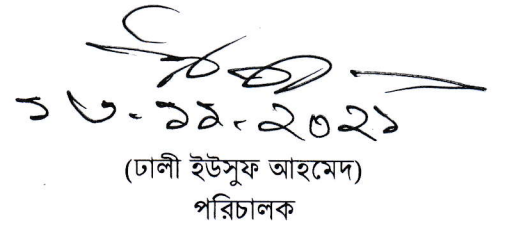 ১৬.১১.২০২১
(ঢালী ইউসুফ আহমেদ)
পরিচালক